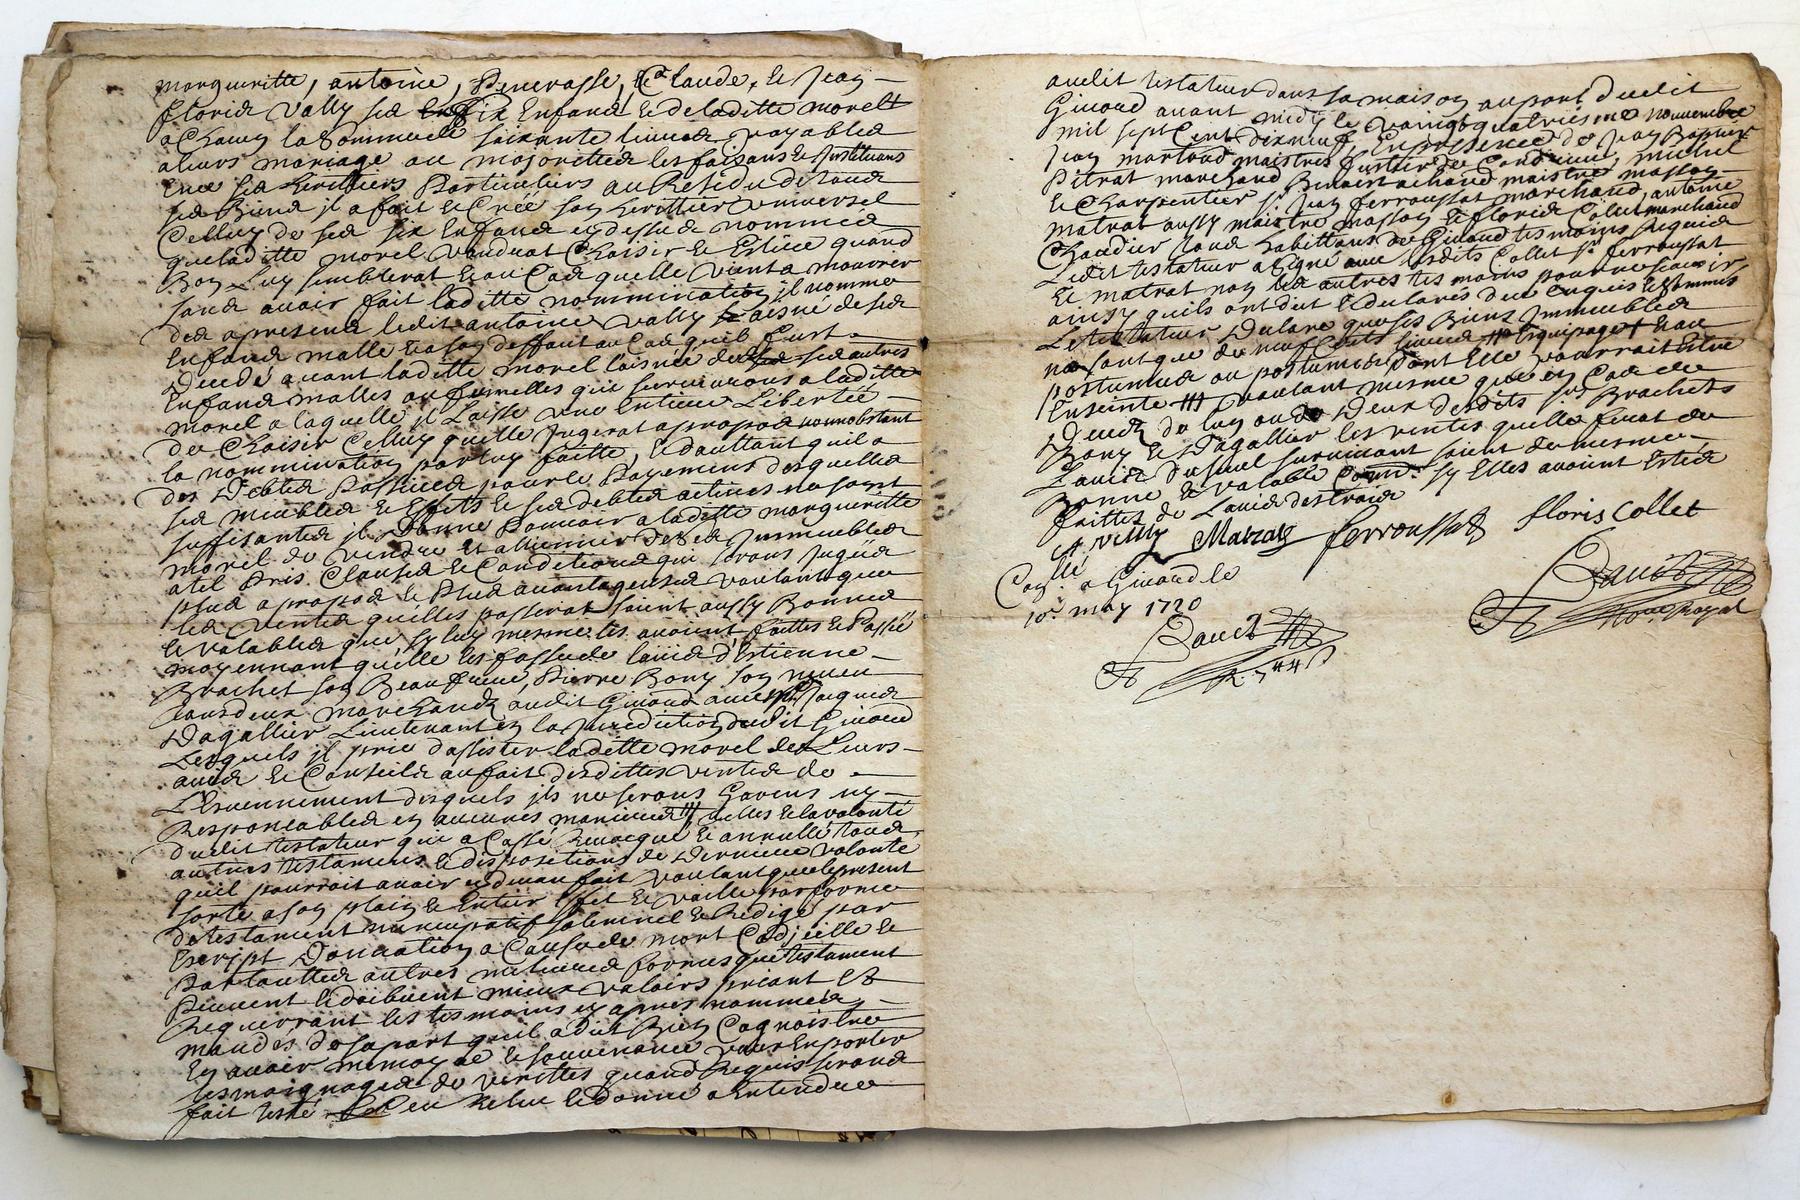 margueritte, antoine, Pencrasse, Claude, et Jean
floris vally ses six Enfans et de laditte morell
a Chacun la Somme de soixante livres payables
a leurs mariage ou majorittes les faisans et Instituans
ses heritiers Particuliers au Residu de tous
ses Biens il a fait et Creé son heritier universel
Celluy de ses six Enfans cy dessus nommés
que laditte morel voudrat Choisir et Eslire quand
Bon Luy semblerat et au Cas quelle vint a mourrir
sans avoir fait laditte nommination il nomme
des apresent ledit antoine vally aisné de ses
Enfans malle et a son deffaut au Cas quil fust
Decedé avant laditte morel laisné des ses autres
Enfans malles ou femelles qui survivrons a laditte
morel a laquelle il Laisse une Entiere Liberteé
de Choisir Celluy quelle Jugerat apropos nonnobstant
la nommination par luy faitte, et dauttant quil a
des Debtes Passives pour le Payement desquelles
ses meubles et Effets et ses debtes actives ne sont
suffisantes il Donne Pouvoir a laditte margueritte
morel de vendre et allienner de ses Immeubles
a tel Pris Clauses et Conditions qui serons Jugés
plus apropos et Plus avantageuses voulant que
les ventes qu'elles passerat soient aussy Bonnes
et valables que sy luy mesme les avoient faittes et Passé
moyennant qu'elle les fasse de lavis d'Estienne
Brachet son Beaufrere, Pierre Bony son neveu
tous deux marchands audit Givord avec Sr Jacques
Dagallier Lieutenant en la Juridiction dudit Givord
Lesquels il prie d'assister laditte morel de Leurs
avis et Conseils au fait desdittes ventes de
L'Evennement desquels ils ne serons Garens ny
Responcables en aucunes manieres, telles et la volonté
dudit testateur qui a Cassé Revocqué et annullé tous
autres testamens et dispositions de Derniere volonté
quil pourroit avoir cy devan fait voulant que le present
sorte a son plain et Entier Effet et vaille par forme
de testament nuncupatif solemnel et Redigé par
Escript Donnation a Cause de mort Codicille et
Par touttes autres meilleures formes que testament
Peuvent et doibvent mieux valoirs priant et
Requerrant les tesmoins cy apres nommés
mandés de sa part quil a dit Bien Cognoistre
En avoir memoyre et souvenance pour En porter
tesmoignages de verittes quand Requis serons
fait leu Releu et donné a Entendre
audit testateur dans sa maison au port dudit
Givord avant midy le vaingt quatriesme Novembre
mil sept Cent Dixneuf, En presence de Jean Baptiste
Jean martoud maistres fustier de Condrieu, michel
Pitrat marchand Benoist achard maistre masson
et Charpentier Sr Jean ferroussat marchand, antoine
matrat aussy maistre masson et floris Collet marchand
Chaudier tous habittans de Givord tesmoins Requis
Ledit testateur a signé avec lesdits Collet Sr ferroussat
et matrat non les autres tesmoins pour ne scavoir
ainsy quils ont dit et declarés de ce enquis et sommés
Le testateur Declare que ses Biens Immeubles
ne sont que de neuf Cents livres
postumes ou postume dont Elle pourroit Estre
Enseinte voulant mesme que en Cas de
Decedz de luy ou de Deux desdits Srs Brachets
Bony et Dagallier les ventes quelle ferat de
Lavis dusuel survivant soient de mesme
Bonne et valable Comme sy Elles avoient Estés
faittes de Lavis des trois
A vally Matrat ferroussat floris Collet
Coll. a Givord le
10e may 1720
Bauet
Bauet
No. Royal